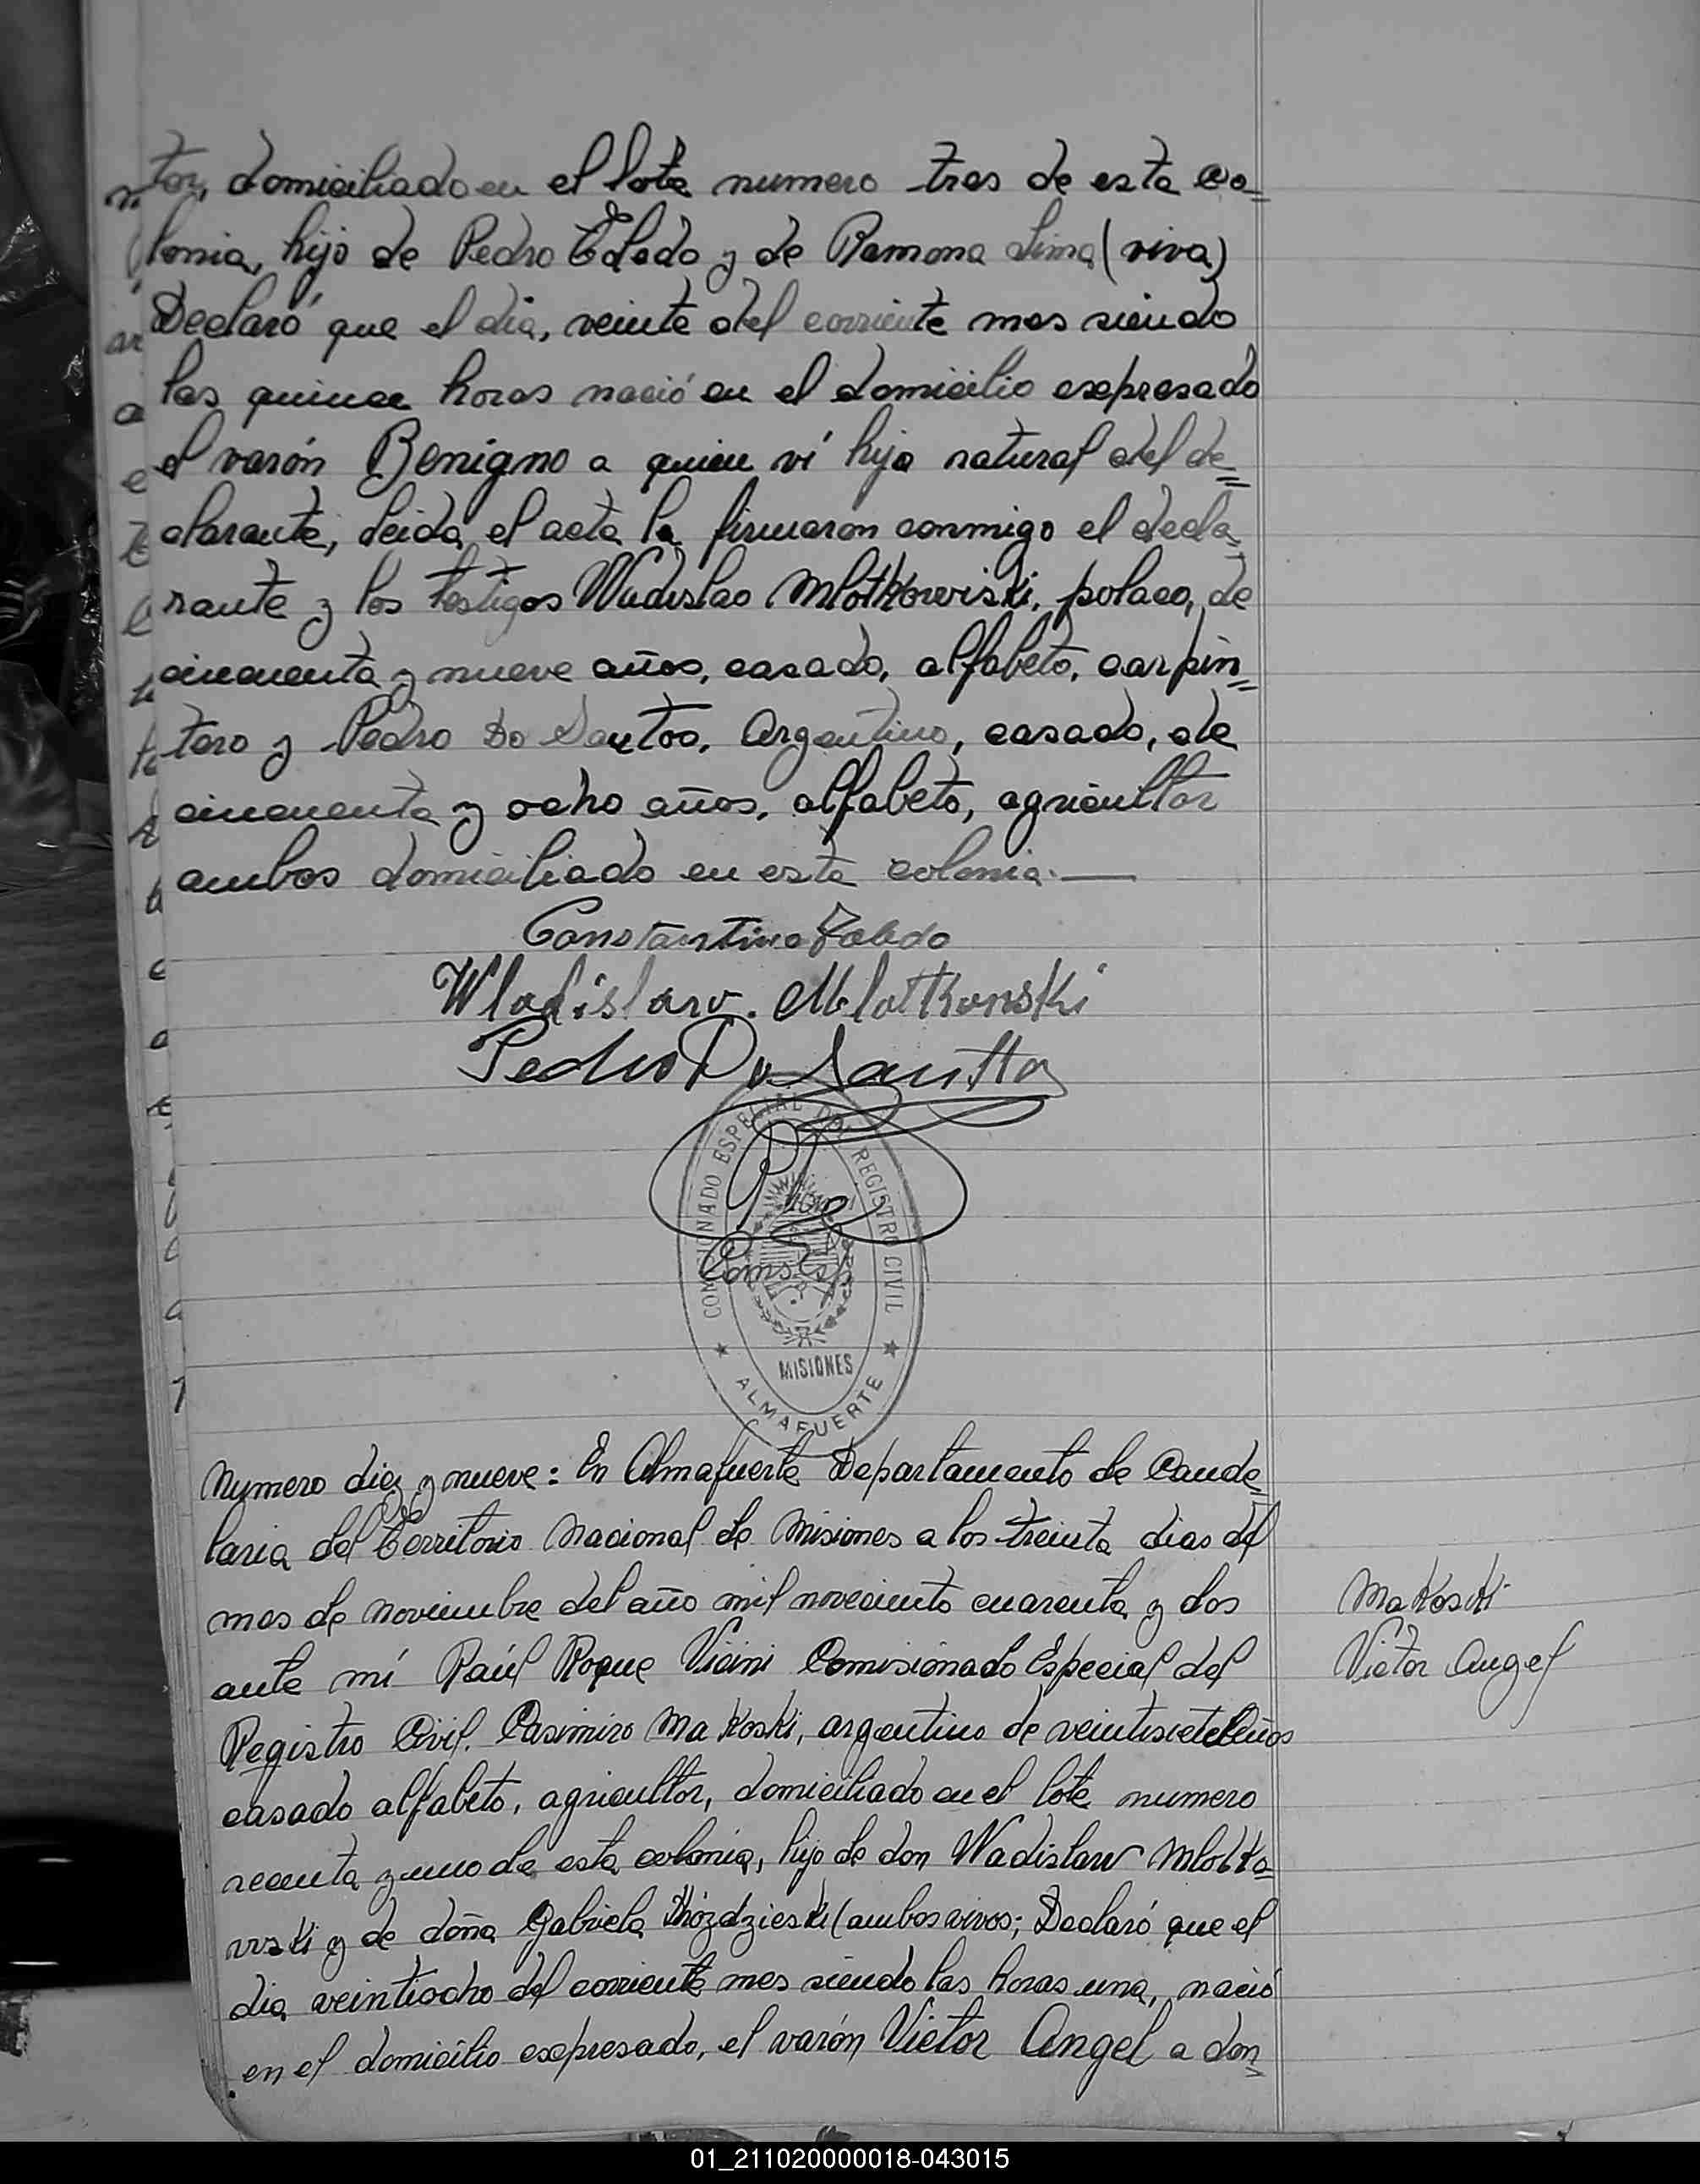 tor, domiciliado en el lote numero tres de esta co-
lonia, hijo de Pedro Toledo y de Ramona Lima (viva)
Declaró que el dia, veinte del corriente mes siendo
las quince horas nació en el domicilio exepresado
el varón Benigno a quien ví hijo natural del de=
clarante, leida el acta la firmaron conmigo el decla=
rante y los testigos Wadislao Mlotkowiski, polaco, de
cincuenta y nueve años, casado, alfabeto, carpin=
tero y Pedro Do Santos, Argentino, casado, de
cincuenta y ocho años, alfabeto, agricultor
ambos domiciliado en esta colonia.—
Constantino Toledo
Wladislaw. Mlotkowski
Pedro Do Santto
COMISIONADO ESPECIAL DEL REGISTRO CIVIL
Coms Esp
MISIONES
ALMAFUERTE
Numero diez y nueve: En Almafuerte Departamento de Cande=
laria del Territorio Nacional de Misiones a los treinta dias del
mes de noviembre del año mil noveciento cuarenta y dos
Makoski
ante mí Raúl Roque Vicini Comisionado Especial del
Victor Angel
Registro Civil. Casimiro Makoski, argentino de veintisiete años
casado alfabeto, agricultor, domiciliado en el lote numero
secenta y uno de esta colonia, hijo de don Wadislaw Mlotko=
wski y de doña Gabriela (ambos vivos; Declaró que el
dia veintiocho del corriente mes siendo las horas una, nació
en el domicilio exepresado, el varón Victor Angel a don=
01_211020000018-043015